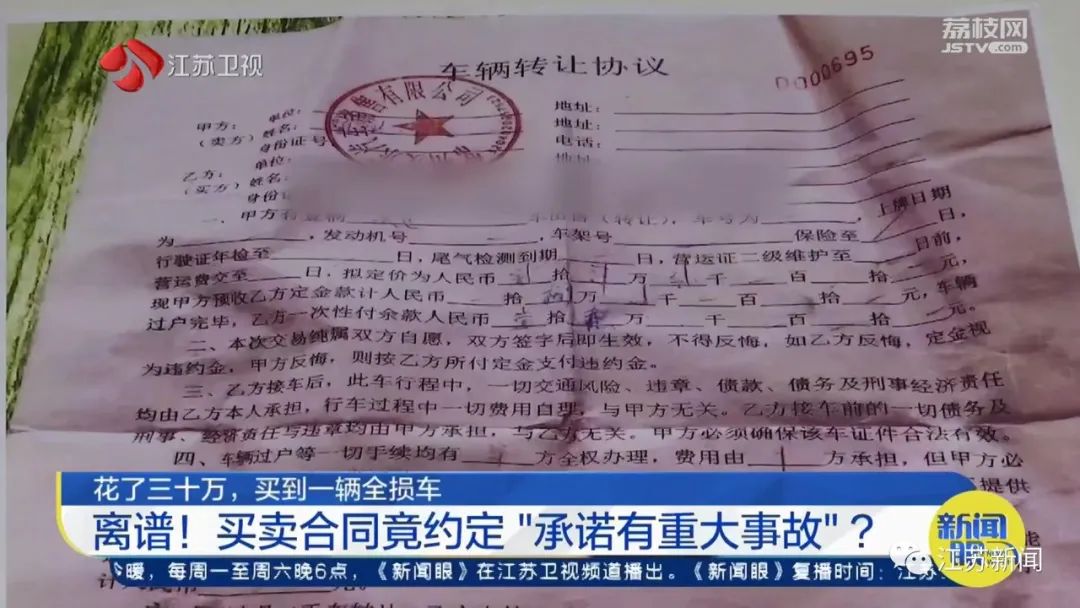 江苏卫视
荔枝网
JSTV.com
车辆转让协议
D000695
销售有限公司
甲方：
单位：
地址：
(卖方)
姓名：
地址：
身份证号
电话：
乙方：
单位：
地址
(买方)
姓名：
身份证
一、甲方有
车出售（转让），车号为
，上牌日期
为
，发动机号
，车架号
保险至
日，
行驶证年检至
日，尾气检测到期
日，营运证二级维护至
日前，
营运费交至
日，拟定价为人民币
拾
万
千
百
拾
元，
现甲方预收乙方定金款计人民币
拾
万
千
百
拾
元，车辆
过户完毕，乙方一次性付余款人民币
拾
万
千
百
拾
元。
二、本次交易纯属双方自愿，双方签字后即生效，不得反悔，如乙方反悔，定金视
为违约金，甲方反悔，则按乙方所付定金支付违约金。
三、乙方接车后，此车行程中，一切交通风险、违章、债款、债务及刑事经济责任
均由乙方本人承担，行车过程中一切费用自理，与甲方无关。乙方接车前的一切债务及
刑事、经济责任与违章均由甲方承担，与乙方无关。甲方必须确保该车证件合法有效。
四、车辆过户等一切手续均有
方全权办理，费用由
方承担，但甲方必
提供
花了三十万，买到一辆全损车
离谱！买卖合同竟约定"承诺有重大事故"？
新闻
江苏新闻
暖，每周一至周六晚6点，《新闻眼》在江苏卫视频道播出。《新闻眼》复播时间：江苏